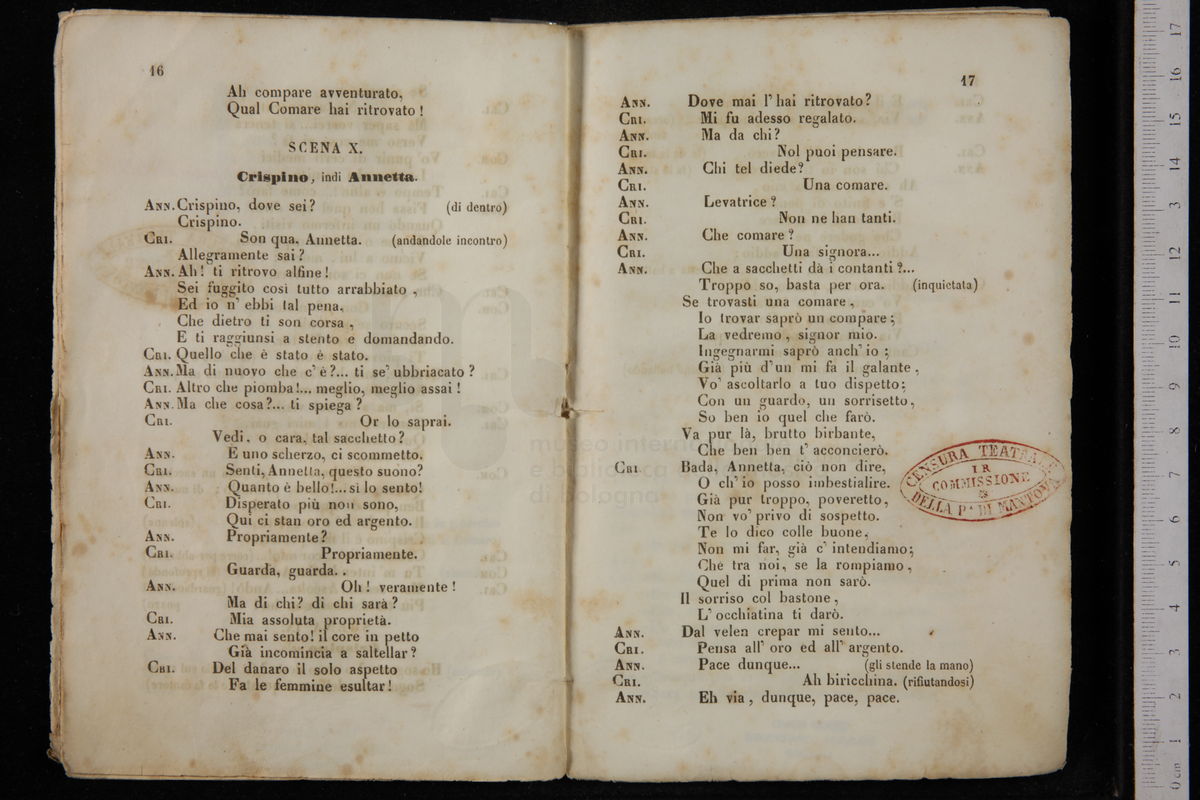 16
Ah compare avventurato,
Qual Comare hai ritrovato !
SCENA X.
Crispino, indi Annetta.
ANN. Crispino, dove sei ? (di dentro)
Crispino.
CRI. Son qua, Annetta. (andandole incontro)
Allegramente sai ?
ANN. Ah ! ti ritrovo alfine !
Sei fuggito così tutto arrabbiato ,
Ed io n' ebbi tal pena,
Che dietro ti son corsa ,
E ti raggiunsi a stento e domandando.
CRI. Quello che è stato è stato.
ANN. Ma di nuovo che c' è ?... ti se' ubbriacato ?
CRI. Altro che piomba !... meglio, meglio assai !
ANN. Ma che cosa ?... ti spiega ?
CRI. Or lo saprai.
Vedi, o cara, tal sacchetto ?
ANN. E uno scherzo, ci scommetto.
CRI. Senti, Annetta, questo suono?
ANN. Quanto è bello!... sì lo sento!
CRI. Disperato più non sono,
Qui ci stan oro ed argento.
ANN. Propriamente ?
CRI. Propriamente.
Guarda, guarda. .
ANN. Oh ! veramente !
Ma di chi ? di chi sarà ?
CRI. Mia assoluta proprietà.
ANN. Che mai sento! il core in petto
Già incomincia a saltellar ?
CRI. Del danaro il solo aspetto
Fa le femmine esultar !
17
ANN. Dove mai l' hai ritrovato ?
CRI. Mi fu adesso regalato.
ANN. Ma da chi ?
CRI. Nol puoi pensare.
ANN. Chi tel diede ?
CRI. Una comare.
ANN. Levatrice ?
CRI. Non ne han tanti.
ANN. Che comare ?
CRI. Una signora...
ANN. Che a sacchetti dà i contanti ?...
Troppo so, basta per ora. (inquietata)
Se trovasti una comare ,
Io trovar saprò un compare ;
La vedremo , signor mio.
Ingegnarmi saprò anch' io ;
Già più d'un mi fa il galante ,
Vo' ascoltarlo a tuo dispetto;
Con un guardo, un sorrisetto,
So ben io quel che farò.
Va pur là, brutto birbante,
Che ben ben t' acconcierò.
CRI. Bada, Annetta, ciò non dire,
O ch' io posso imbestialire.
Già pur troppo, poveretto ,
Non vo' privo di sospetto.
Te lo dico colle buone,
Non mi far, già c' intendiamo;
Che tra noi, se la rompiamo ,
Quel di prima non sarò.
Il sorriso col bastone ,
L' occhiatina ti darò.
ANN. Dal velen crepar mi sento...
CRI. Pensa all' oro ed all' argento.
ANN. Pace dunque... (gli stende la mano)
CRI. Ah biricchina. (rifiutandosi)
ANN. Eh via , dunque, pace, pace.
CENSURA TEATRALE
I R
COMMISSIONE
DELLA P.ª DI MANTOVA
museo internazionale
e biblioteca
di bologna